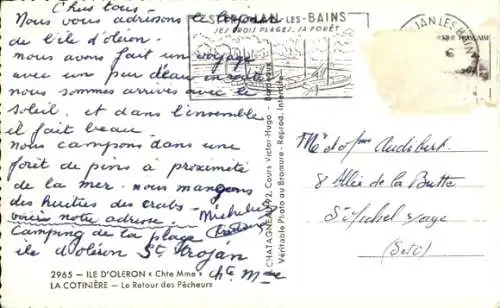 Chers tous
Nous vous adressons le bonjour
de l'île d'oléron.
nous avons fait un voyage
avec un peu d'eau en route
nous sommes arrivés avec le
soleil, et dans l'ensemble
il fait beau.
nous campons dans une
forêt de pins à proximité
de la mer. nous mangeons
des huitres des crabes.
voici notre adresse. Micheline
Camping de la plage
île d'oléron St Trojan
Chte Mme
2965 - ILE D'OLERON « Chte Mme »
LA COTINIÈRE - Le Retour des Pêcheurs
CHATAGNEAU, 2, Cours Victor-Hugo - Bordeaux
Véritable Photo au Bromure - Reprod. Interdite
JAN-LES-BAINS
SES TROIS PLAGES. SA FORÊT
JAN LES BAINS
6
FRANÇAISE
Mr et Mme Audibert
8 Allée de la Butte
St Michel s/orge
(S et O)